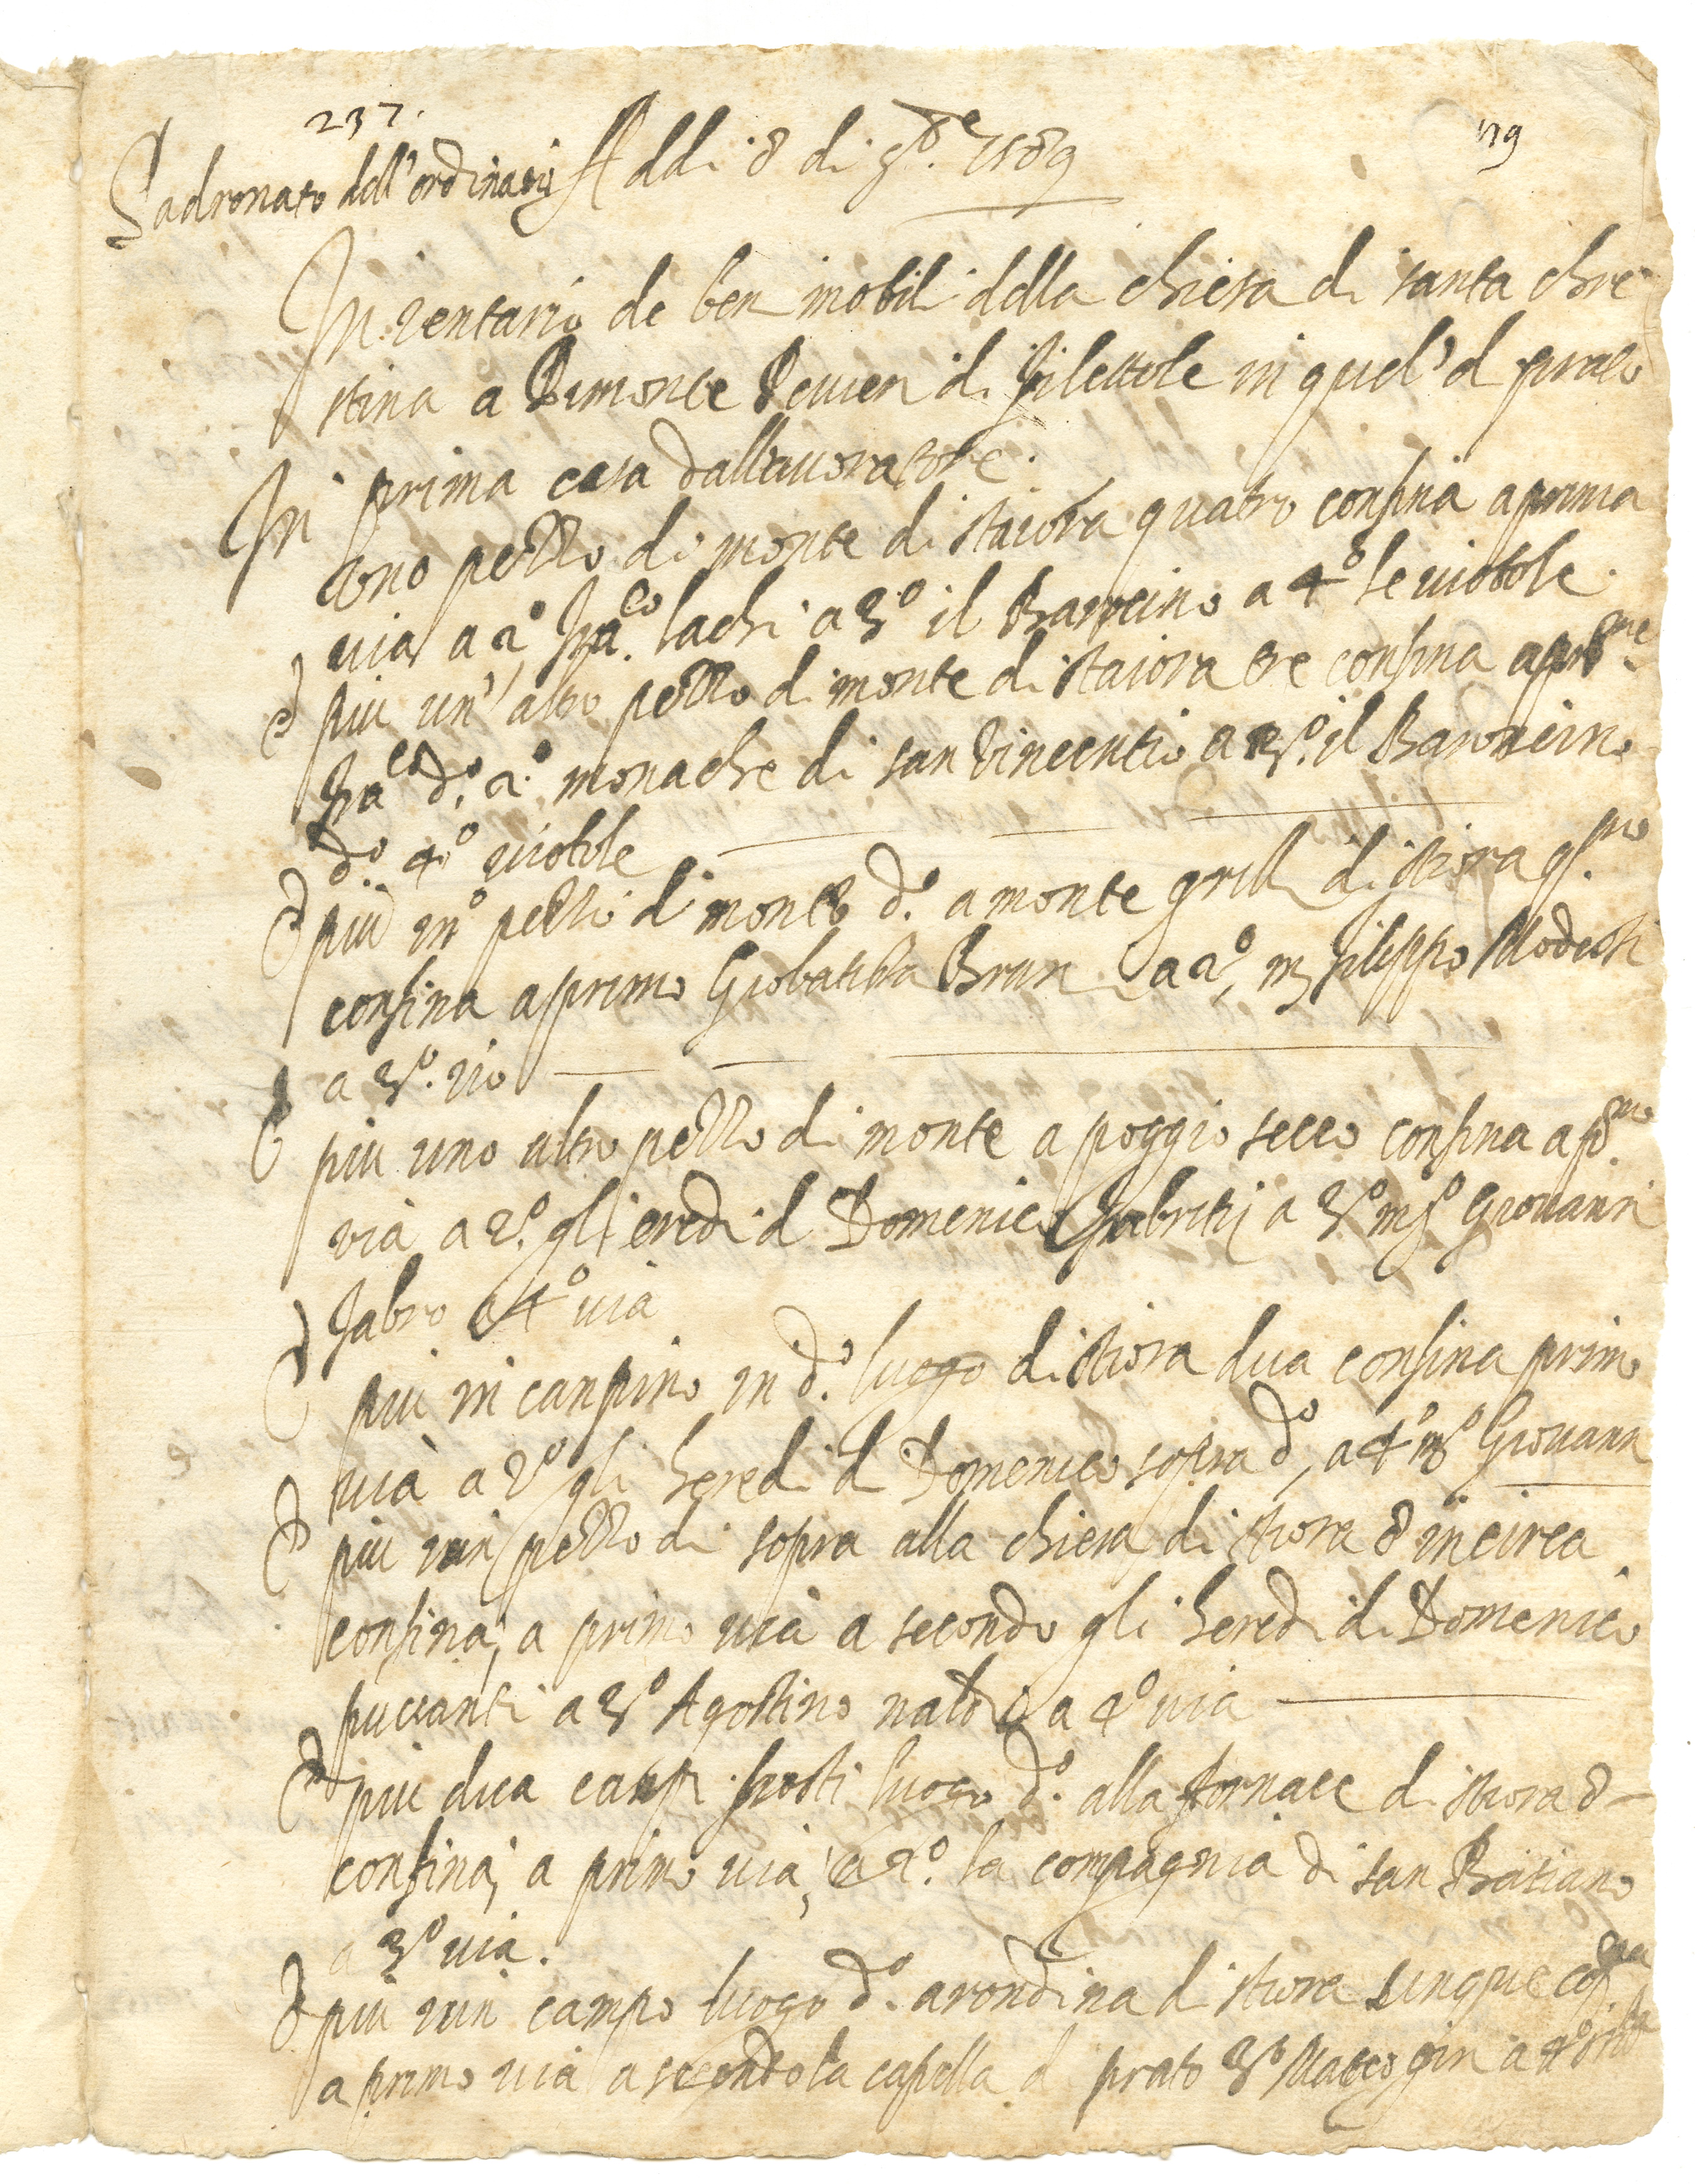 237.
119
Padronato dell'ordinario Addi 8 di 9bre 1589
Inventario de beni inobili della chiesa di santa chri
stina a Pimonte Pivieri di filettole in quel' d prato
In prima casa dallavoratore.
uno pezzo di monte di staiora quatro confina aprima
via a 2o fraco lachi a 3o il Baroncino a 4o le viotole.
E piu un'altro pezzo di monte di staiora tre confina a
fraco do. 2o monache di san Vincentio a 3o. il Baroncino
do. 4o viotole
E piu un pezzo di monte do. a monte grilli di stiora
confina aprimo Giobatista Bruni a 2o, m filippo Modesti
a 3o. rio
E piu uno altro pezzo di monte a poggio secco confina a pomo
via a 2o. gli eredi d Domenico a 3o mo Giovanni
fabro a 4o via
E piu un canpino in do. luogo di stiora dua confina primo
via a 2o gli heredi d Domenico sopra do, a 4o mo Giovann
E piu uun pezzo di sopra alla chiesa di stiora 8 incirca
confina, a primo via a secondo gli heredi di Domenico
puccianti a 3o Agostino a 4o via
E piu dua canpi posti luogo do. alla fornace di stiora 8
confina, a primo via, a 2o. la compagnia di san Bastiano
a 3o via.
E piu uun campo luogo do. arondina d stiora sinque
a primo via a secondo la capella d prato 3o Matteo a 4o